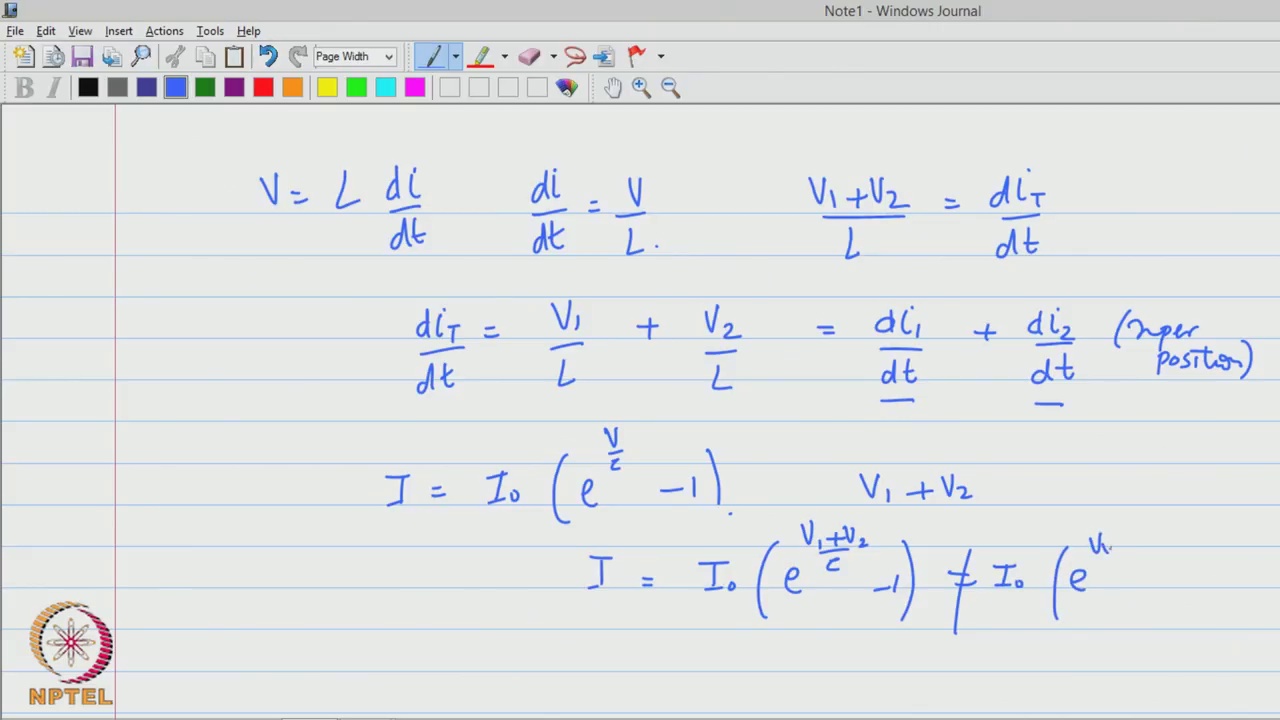 Note1 - Windows Journal
File Edit View Insert Actions Tools Help
Page Width
B I
V = L di/dt di/dt = V/L. (V1 + V2)/L = diT/dt
diT/dt = V1/L + V2/L = di1/dt + di2/dt (super
position)
I = I0 (e^(V/c) - 1). V1 + V2
I = I0 (e^((V1+V2)/c) - 1) ≠ I0 (e^V1
NPTEL